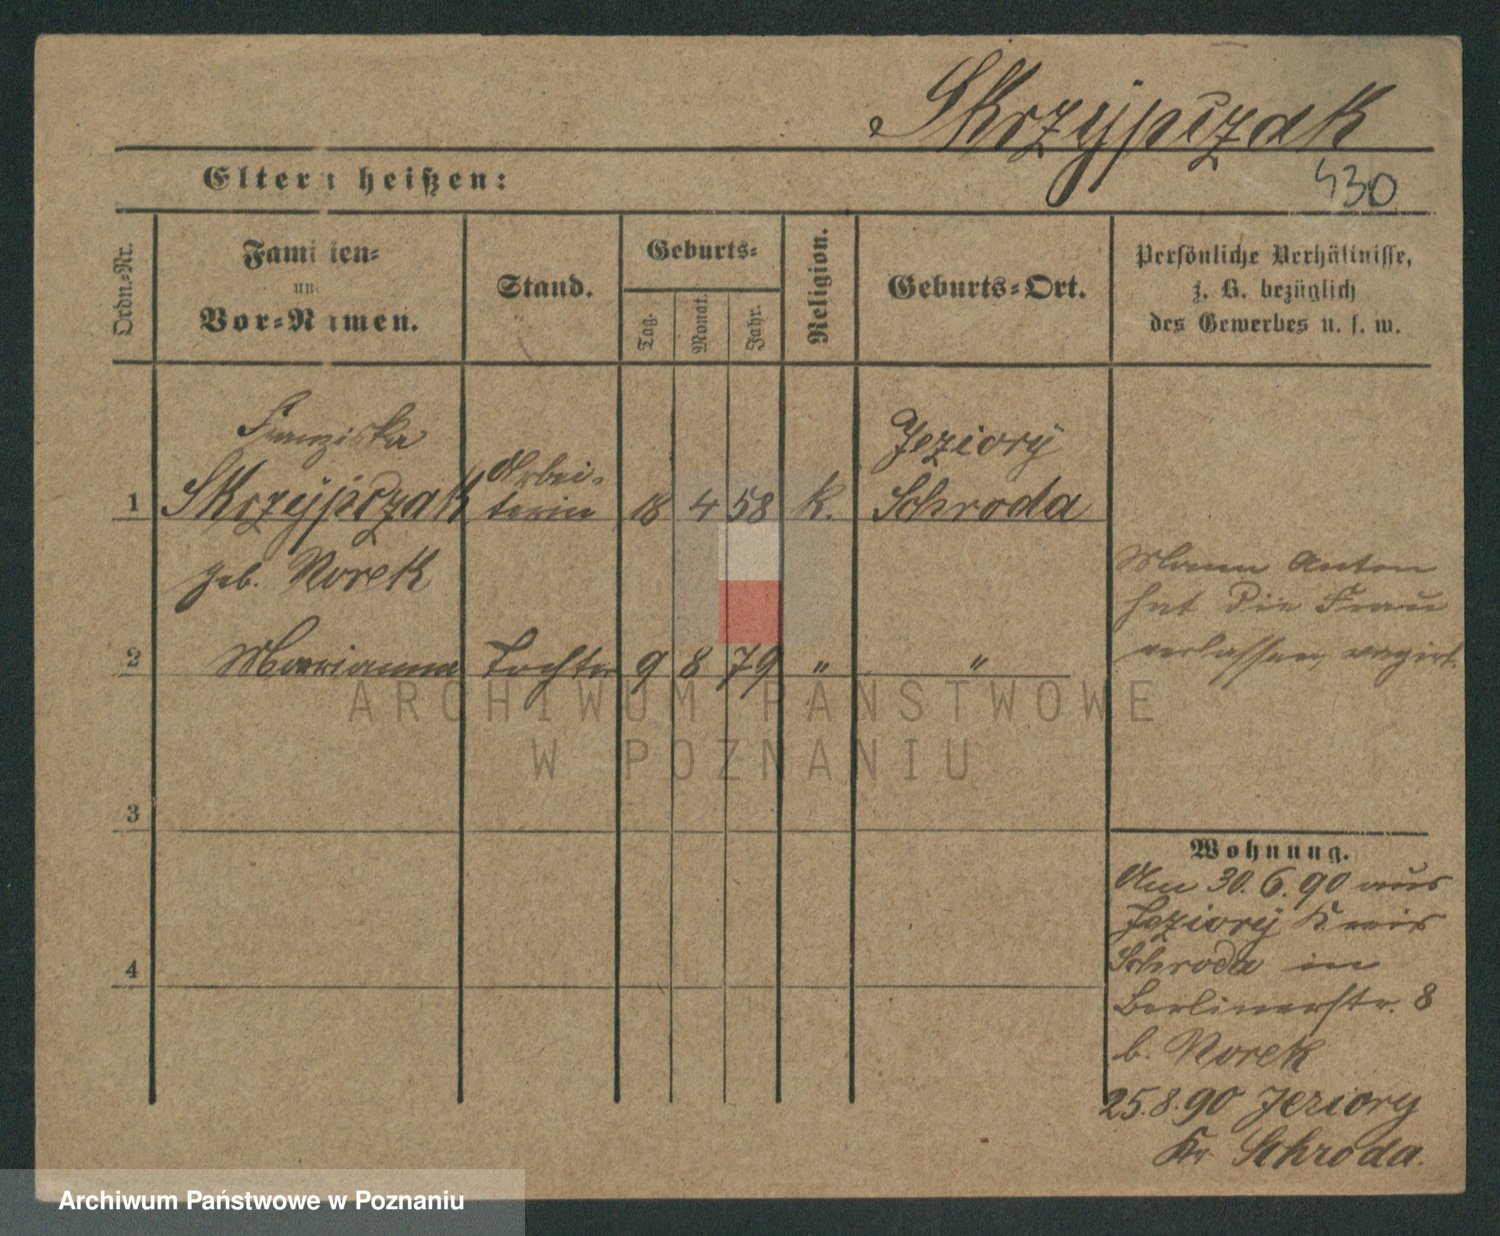 Skrzypczak
430
Eltern heißen:
Ordn.-Nr.
Familien-
und
Vor-Namen.
Stand.
Geburts-
Tag.
Monat.
Jahr.
Religion.
Geburts-Ort.
Persönliche Verhältnisse,
z. B. bezüglich
des Gewerbes u. s. w.
Franziska
1 Skrzypczak Arbei-
terin 18 4 58 k. Jeziory
Schroda
geb. Norek
Mann Anton
hat die Frau
verlassen,
2 Marianna Tochter 9 8 79 " "
ARCHIWUM PAŃSTWOWE
W POZNANIU
3
4
Wohnung.
Am 30.6.90 aus
Jeziory Kreis
Schroda in
Berlinerstr. 8
b. Norek
25.8.90 Jeziory
Kr Schroda.
Archiwum Państwowe w Poznaniu